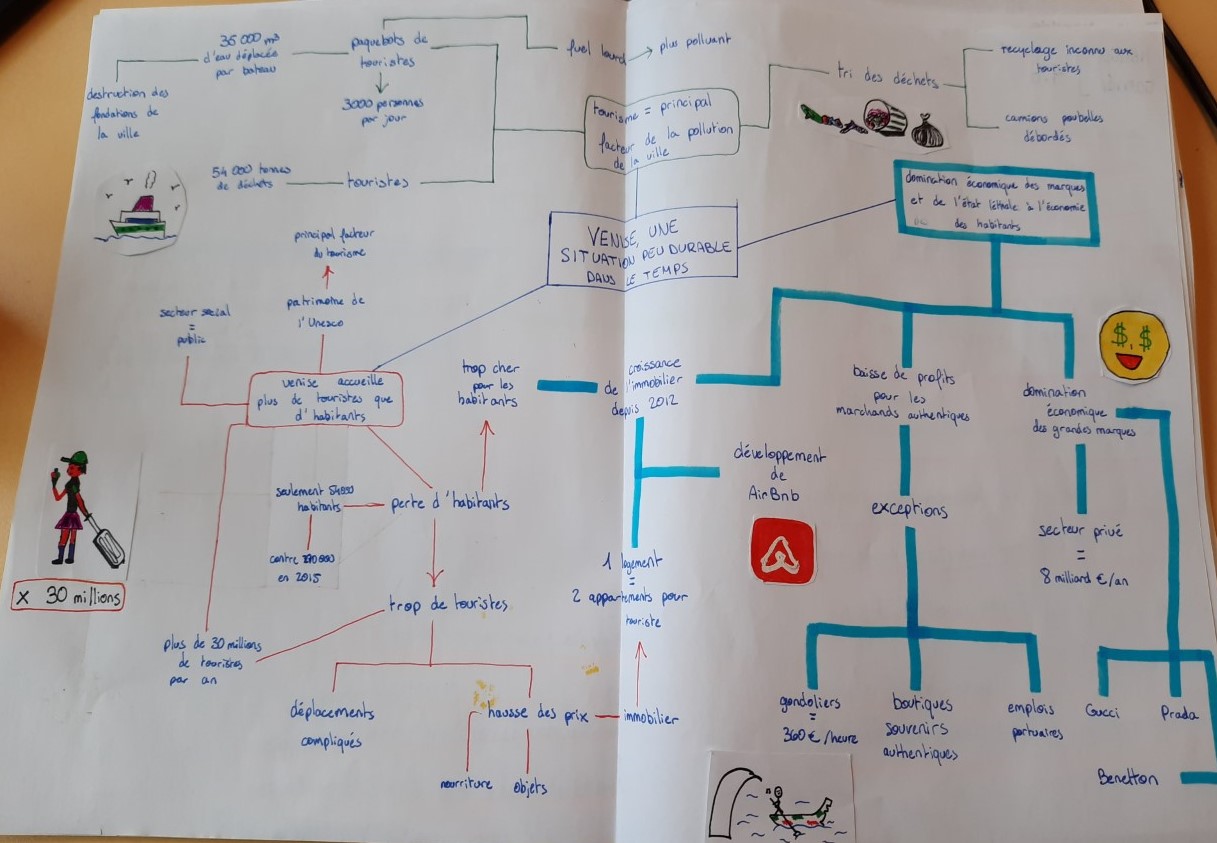 36 000 m³
d'eau déplacée
par bateau
destruction des
fondations de
la ville
paquebots de
touristes
3000 personnes
par jour
fuel lourd
plus polluant
54 000 tonnes
de déchets
touristes
tourisme = principal
facteur de la pollution
de la ville
tri des déchets
recyclage inconnu aux
touristes
camions poubelles
débordés
VENISE, UNE
SITUATION PEU DURABLE
DANS LE TEMPS
domination économique des marques
et de l'état léthale à l'économie
des habitants
principal facteur
du tourisme
patrimoine de
l'Unesco
secteur social
=
public
venise accueille
plus de touristes que
d'habitants
perte d'habitants
habitants
seulement
contre
en 2015
trop cher
pour les
habitants
trop de touristes
plus de 30 millions
de touristes
par an
x 30 millions
déplacements
compliqués
hausse des prix
nourriture
objets
immobilier
croissance
de l'immobilier
depuis 2012
développement
de
AirBnb
1 logement
=
2 appartements pour
touriste
baisse de profits
pour les
marchands authentiques
exceptions
gondoliers
=
360 € /heure
boutiques
souvenirs
authentiques
emplois
portuaires
domination
économique
des grandes marques
secteur privé
=
8 milliard €/an
Gucci
Prada
Benetton
$,$